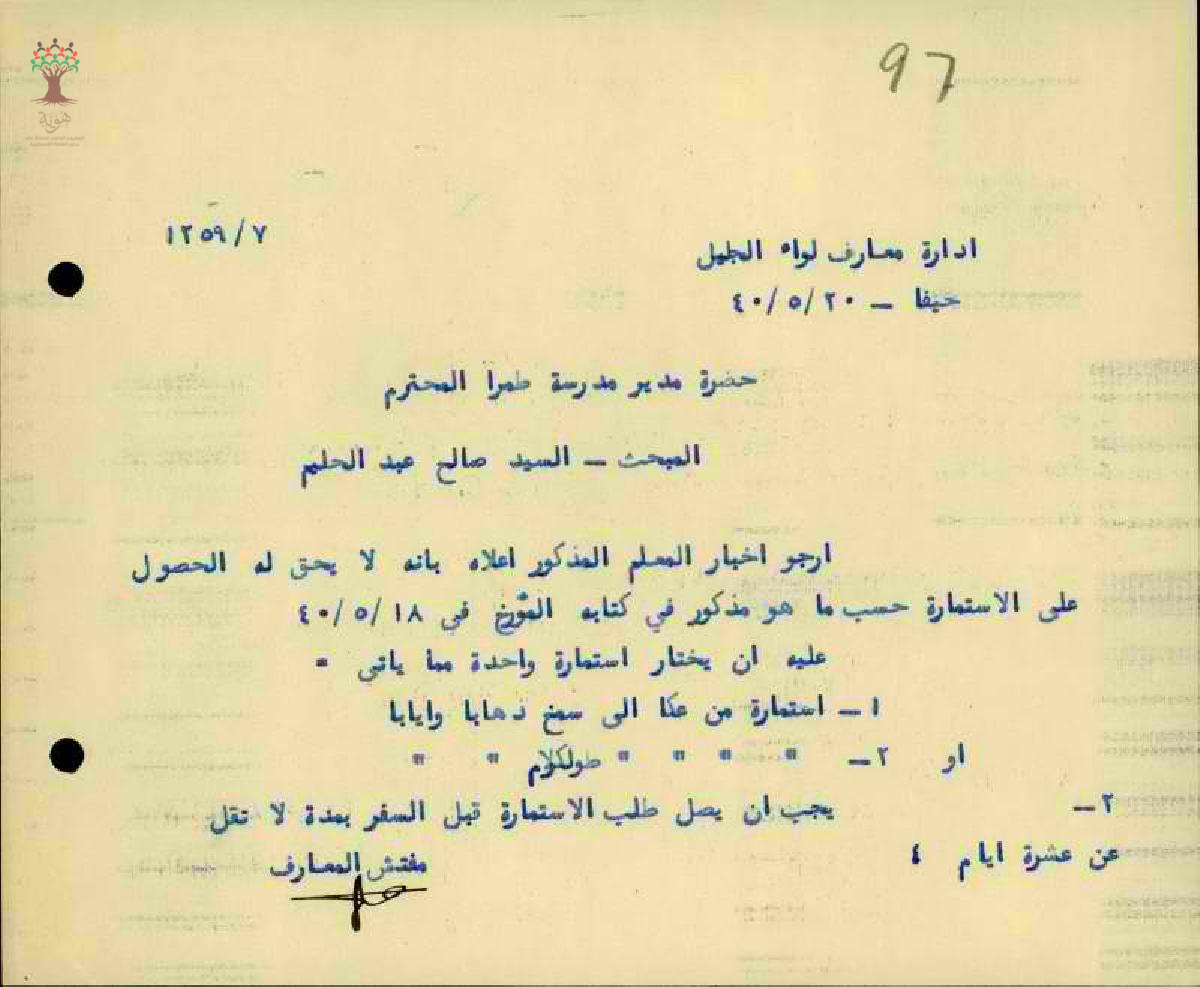 97
١٢٥٩/٧
ادارة معارف لواء الجليل
حيفا – ٤٠/٥/٢٠
حضرة مدير مدرسة طمرا المحترم
المبحث – السيد صالح عبد الحليم
ارجو اخبار المعلم المذكور اعلاه بانه لا يحق له الحصول
على الاستمارة حسب ما هو مذكور في كتابه المؤرخ في ٤٠/٥/١٨
عليه ان يختار استمارة واحدة مما ياتي =
١– استمارة من عكا الى سمخ ذهابا وايابا
او ٢– " " " " طولكرم " "
٢– يجب ان يصل طلب الاستمارة قبل السفر بمدة لا تقل
عن عشرة ايام ٤
مفتش المعارف
هوية